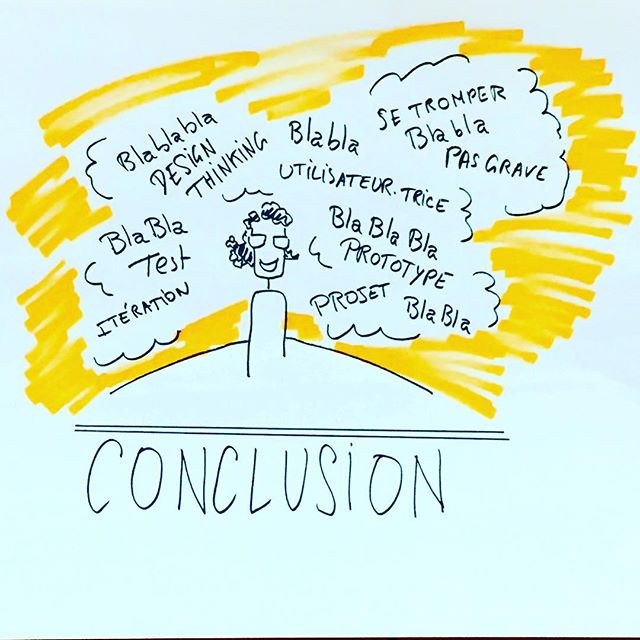 Blablabla
DESIGN
THINKING
Blabla
UTILISATEUR.TRICE
SE TROMPER
Blabla
PAS GRAVE
BlaBla
Test
ITÉRATION
Bla Bla Bla
PROTOTYPE
PROJET BlaBla
CONCLUSION